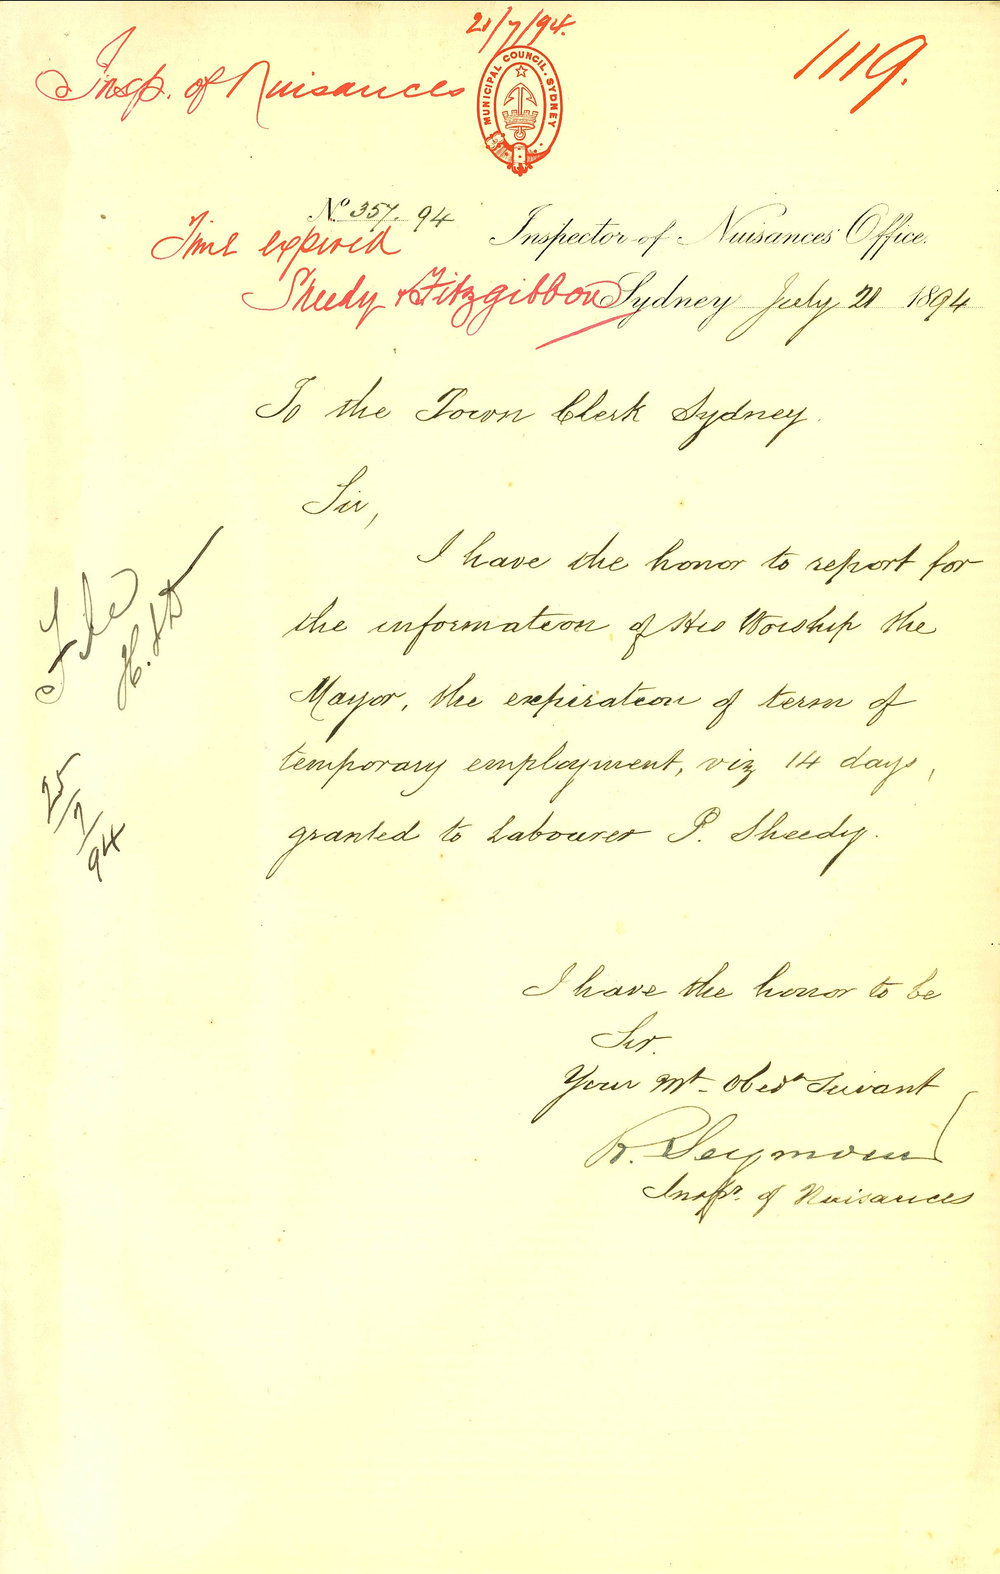 21/7/94.
Insp. of Nuisances
1119.
MUNICIPAL COUNCIL. SYDNEY
No 357. 94
Inspector of Nuisances' Office.
Time expired
Sheedy & Fitzgibbon
Sydney July 21 1894
To the Town Clerk Sydney.
Sir,
I have the honor to report for
the information of His Worship the
Mayor, the expiration of term of
temporary employment, viz 14 days,
granted to Labourer P. Sheedy.
File
25/7/94
I have the honor to be
Sir.
Your Mt. Obedt Servant
R. Seymour
Inspr. of Nuisances